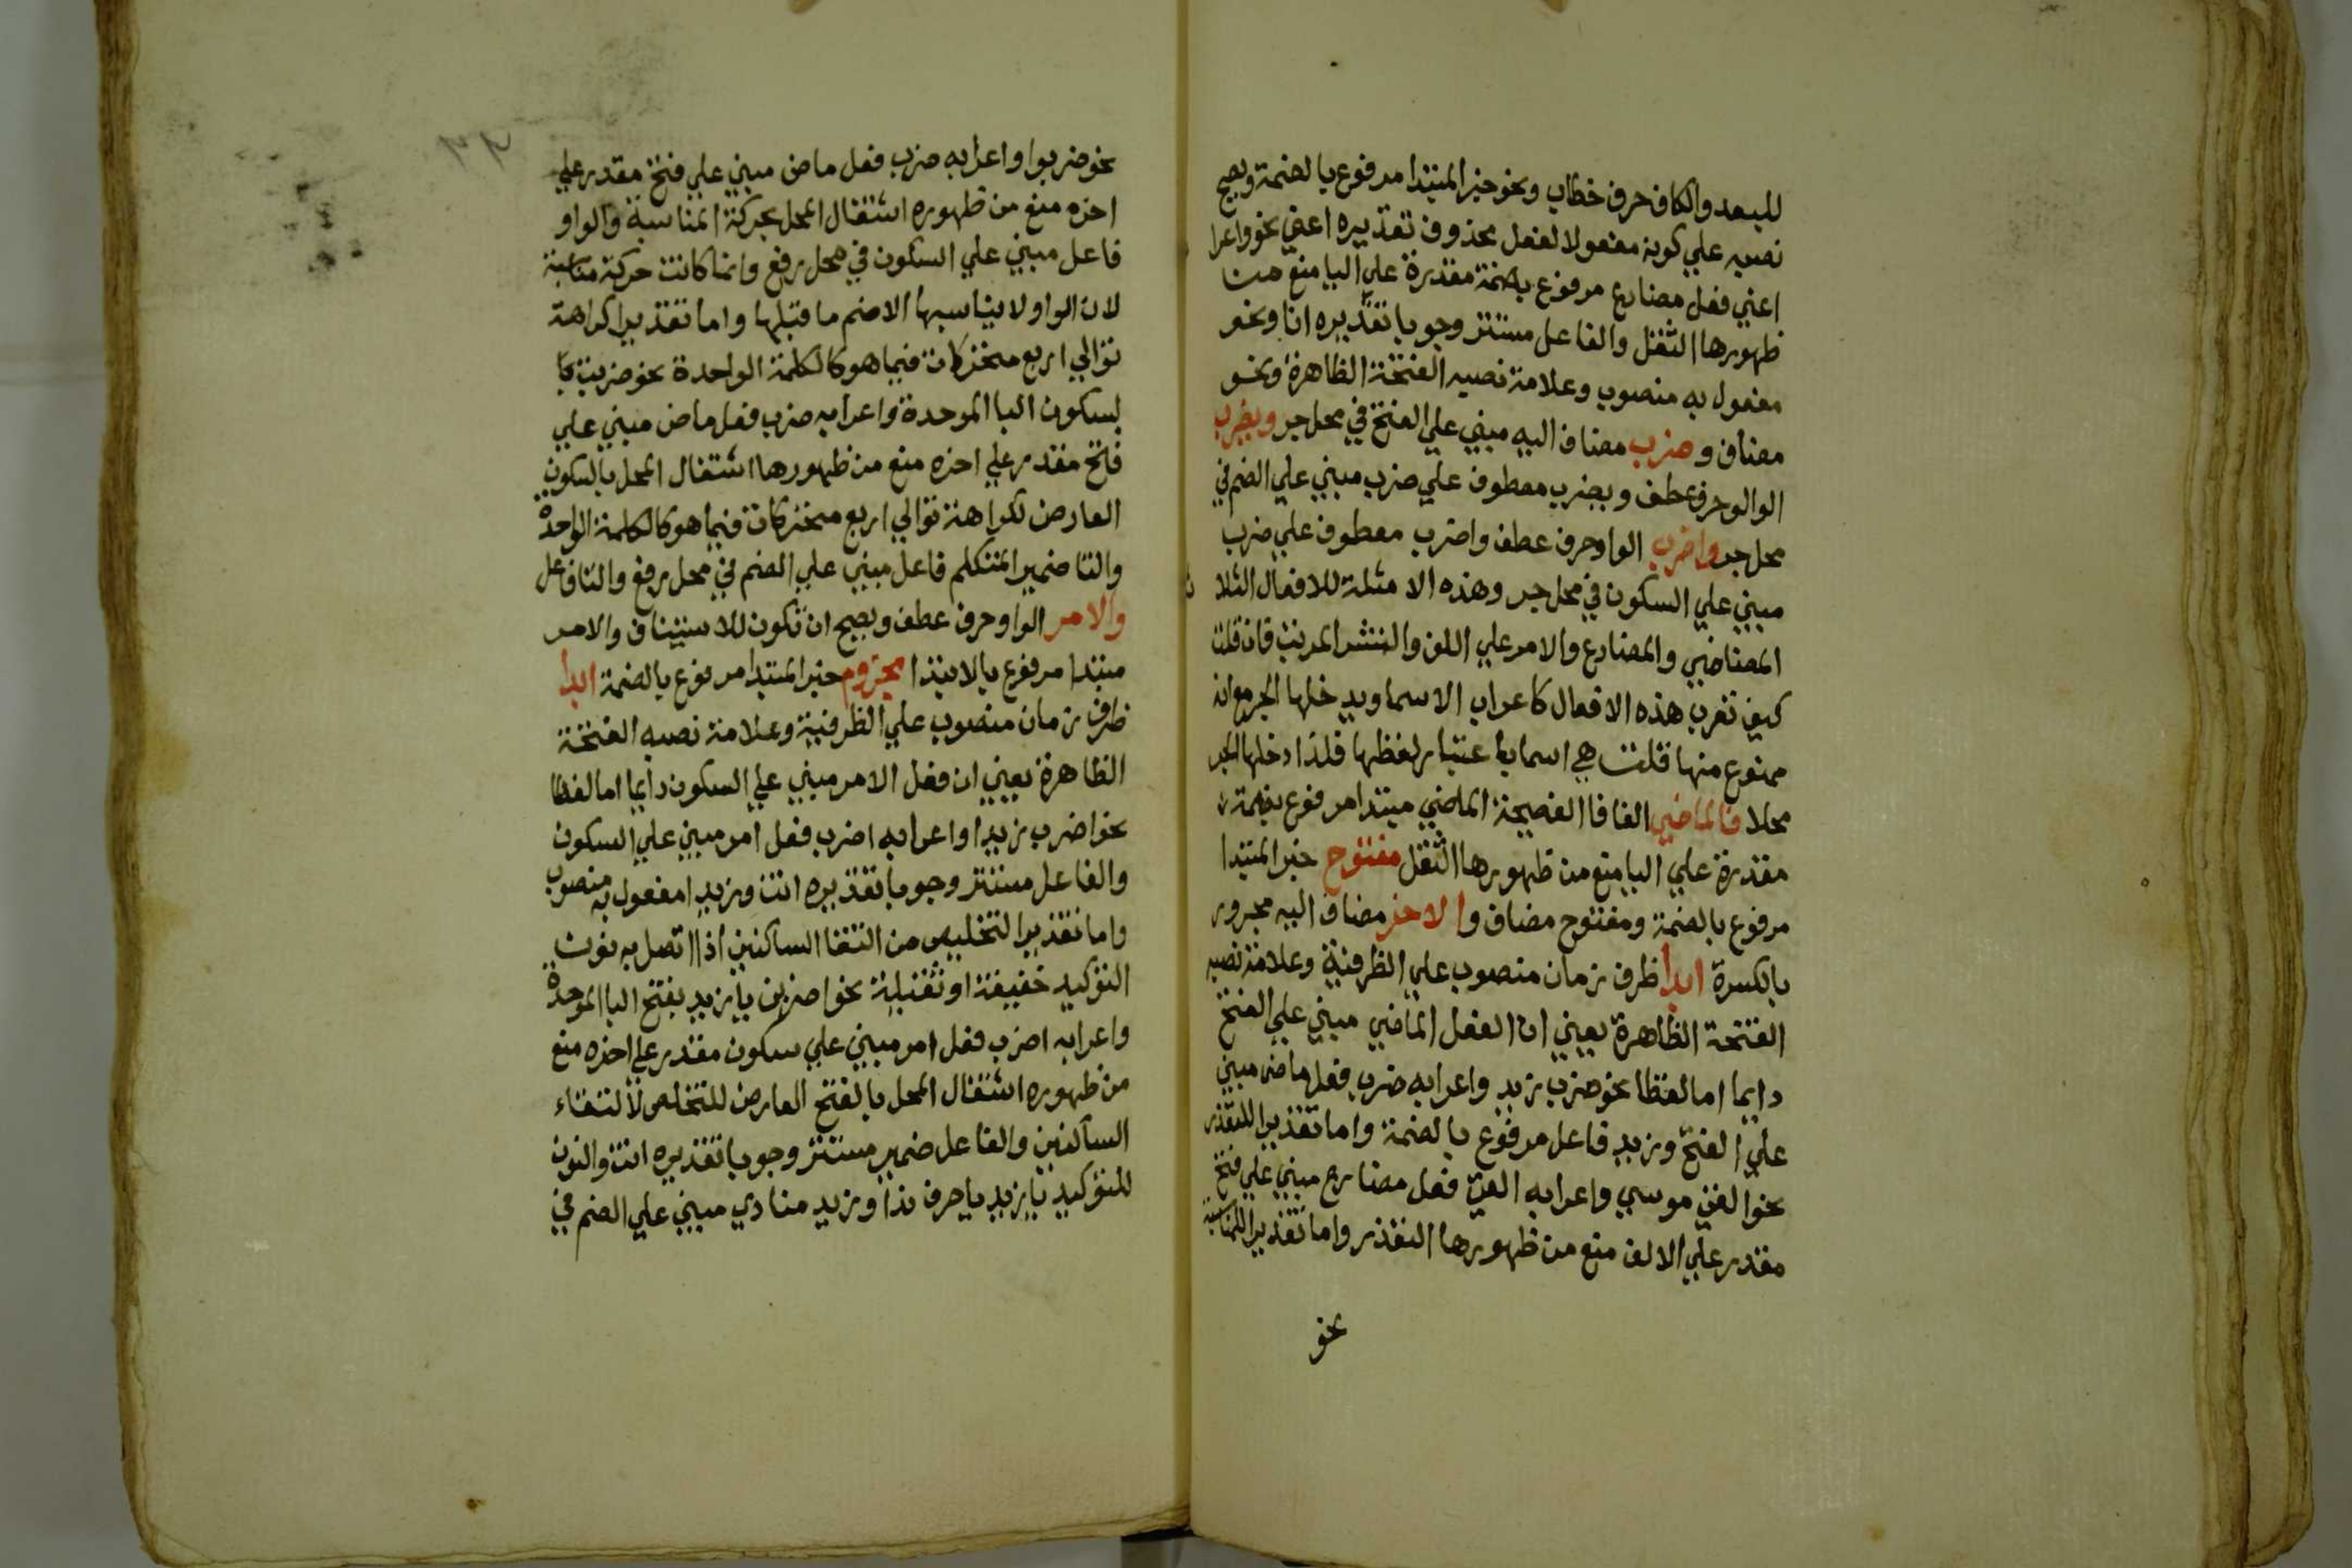 للبعد والكاف حرف خطاب ونحو خبر المبتدا مرفوع بالضمة ويصح
نصبه علي كونه مفعولا لفعل محذوف تقديره اعني نحو واعرا
اعني فعل مضارع مرفوع بضمة مقدرة علي اليا منع من
ظهورها الثقل والفاعل مستتر وجوبا تقديره انا ونحو
مفعول به منصوب وعلامة نصبه الفتحة الظاهرة ونحو
مضاف وضرب مضاف اليه مبني علي الفتح في محل جر ويضرب
الوالو حرف عطف ويضرب معطوف علي ضرب مبني علي الضم في
محل جر واضرب الواو حرف عطف واضرب معطوف علي ضرب
مبني علي السكون في محل جر وهذه الامثلة للافعال الثلا ث
الماضي والمضارع والامر علي اللف والنشر المرتب فان قلت
كيف تعرب هذه الافعال كاعراب الاسما ويدخلها الجر مع انه
ممنوع منها قلت هي اسما باعتبار لفظها فلذا دخلها الجر
محلا فالماضي الفا فا الفصيحة الماضي مبتدا مرفوع بضمة
مقدرة علي اليا منع من ظهورها الثقل مفتوح خبر المبتدا
مرفوع بالضمة ومفتوح مضاف والاخر مضاف اليه مجرور
بالكسرة ابدا ظرف زمان منصوب علي الظرفية وعلامة نصبه
الفتحة الظاهرة يعني ان الفعل الماضي مبني علي الفتح
دايما اما لفظا نحو ضرب زيد واعرابه ضرب فعل ماض مبني
علي الفتح وزيد فاعل مرفوع بالضمة واما تقديرا للتعذر
نحو الفي موسي واعرابه الفي فعل مضارع مبني علي فتح
مقدر علي الالف منع من ظهورها التعذر واما تقديرا للمناسبة
نحو
٣٢
نحو ضربوا واعرابه ضرب فعل ماض مبني علي فتح مقدر علي
اخره منع من ظهوره اشتغال المحل بحركة المناسبة والواو
فاعل مبني علي السكون في محل رفع وانما كانت حركة مناسبة
لان الواو لا يناسبها الا ضم ما قبلها واما تقديرا كراهة
توالي اربع متحركات فيما هو كالكلمة الواحدة نحو ضربت
بسكون البا الموحدة واعرابه ضرب فعل ماض مبني علي
فتح مقدر علي اخره منع من ظهورها اشتغال المحل بالسكون
العارض لكراهة توالي اربع متحركات فيما هو كالكلمة الواحدة
والتا ضمير المتكلم فاعل مبني علي الضم في محل رفع والتا فاعل
والامر الواو حرف عطف ويصح ان تكون للاستيناف والامر
مبتدا مرفوع بالابتدا مجزوم خبر المبتدا مرفوع بالضمة ابدا
ظرف زمان منصوب علي الظرفية وعلامة نصبه الفتحة
الظاهرة يعني ان فعل الامر مبني علي السكون دايما اما لفظا
نحو اضرب زيدا واعرابه اضرب فعل امر مبني علي السكون
والفاعل مستتر وجوبا تقديره انت وزيدا مفعول به منصوب
واما تقديرا لتخليص من التقا الساكنين اذا اتصل به نون
التوكيد خفيفة او ثقيلة نحو اضربن يا زيد بفتح البا الموحدة
واعرابه اضرب فعل امر مبني علي سكون مقدر علي اخره منع
من ظهوره اشتغال المحل بالفتح العارض للتخلص لالتقاء
الساكنين والفاعل ضمير مستتر وجوبا تقديره انت والنون
للتوكيد يا زيد يا حرف ندا وزيد منادي مبني علي الضم في